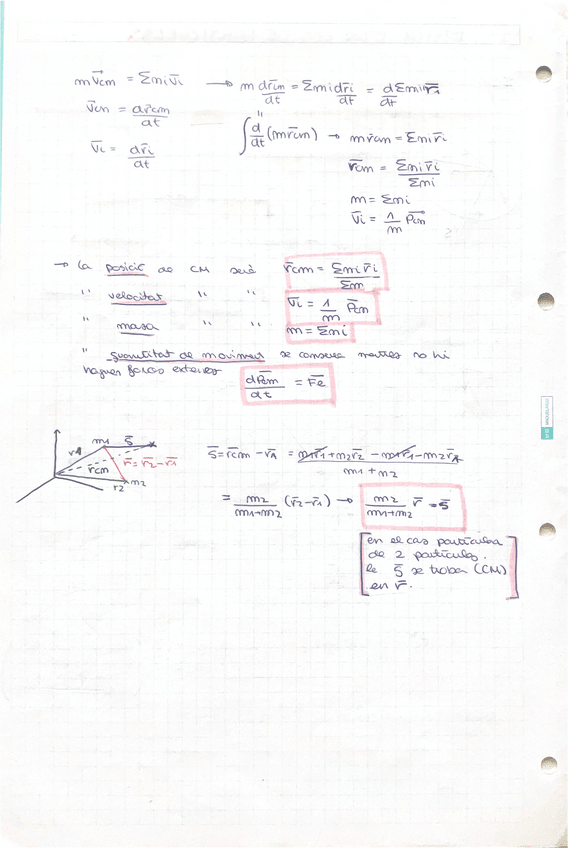 m v̄cm = Σmiv̄i → m dr̄cm/dt = Σmi dr̄i/dt = d/dt Σmi r̄i
v̄cm = dr̄cm/dt
∫ d/dt (m r̄cm) → m r̄cm = Σmi r̄i
v̄i = dr̄i/dt
r̄cm = Σmi r̄i / Σmi
m = Σmi
v̄i = 1/m P̄cm
→ la posició de CM serà r̄cm = Σmi r̄i / Σm
" velocitat " " v̄i = 1/m P̄cm
" masa " " m = Σmi
" quantitat de moviment se conserva mentres no hi
hagues forces exteriors
dP̄cm/dt = F̄e
m1 s̄
rA
r̄ = r̄2 - r̄1
rcm
m2
r2
s̄ = r̄cm - r̄A = m1r̄1 + m2r̄2 - m1r̄1 - m2r̄A / m1 + m2
= m2/m1+m2 (r̄2 - r̄1) → m2/m1+m2 r̄ = s̄
en el cas particular
de 2 particules.
le s̄ se troba (CM)
en r̄.